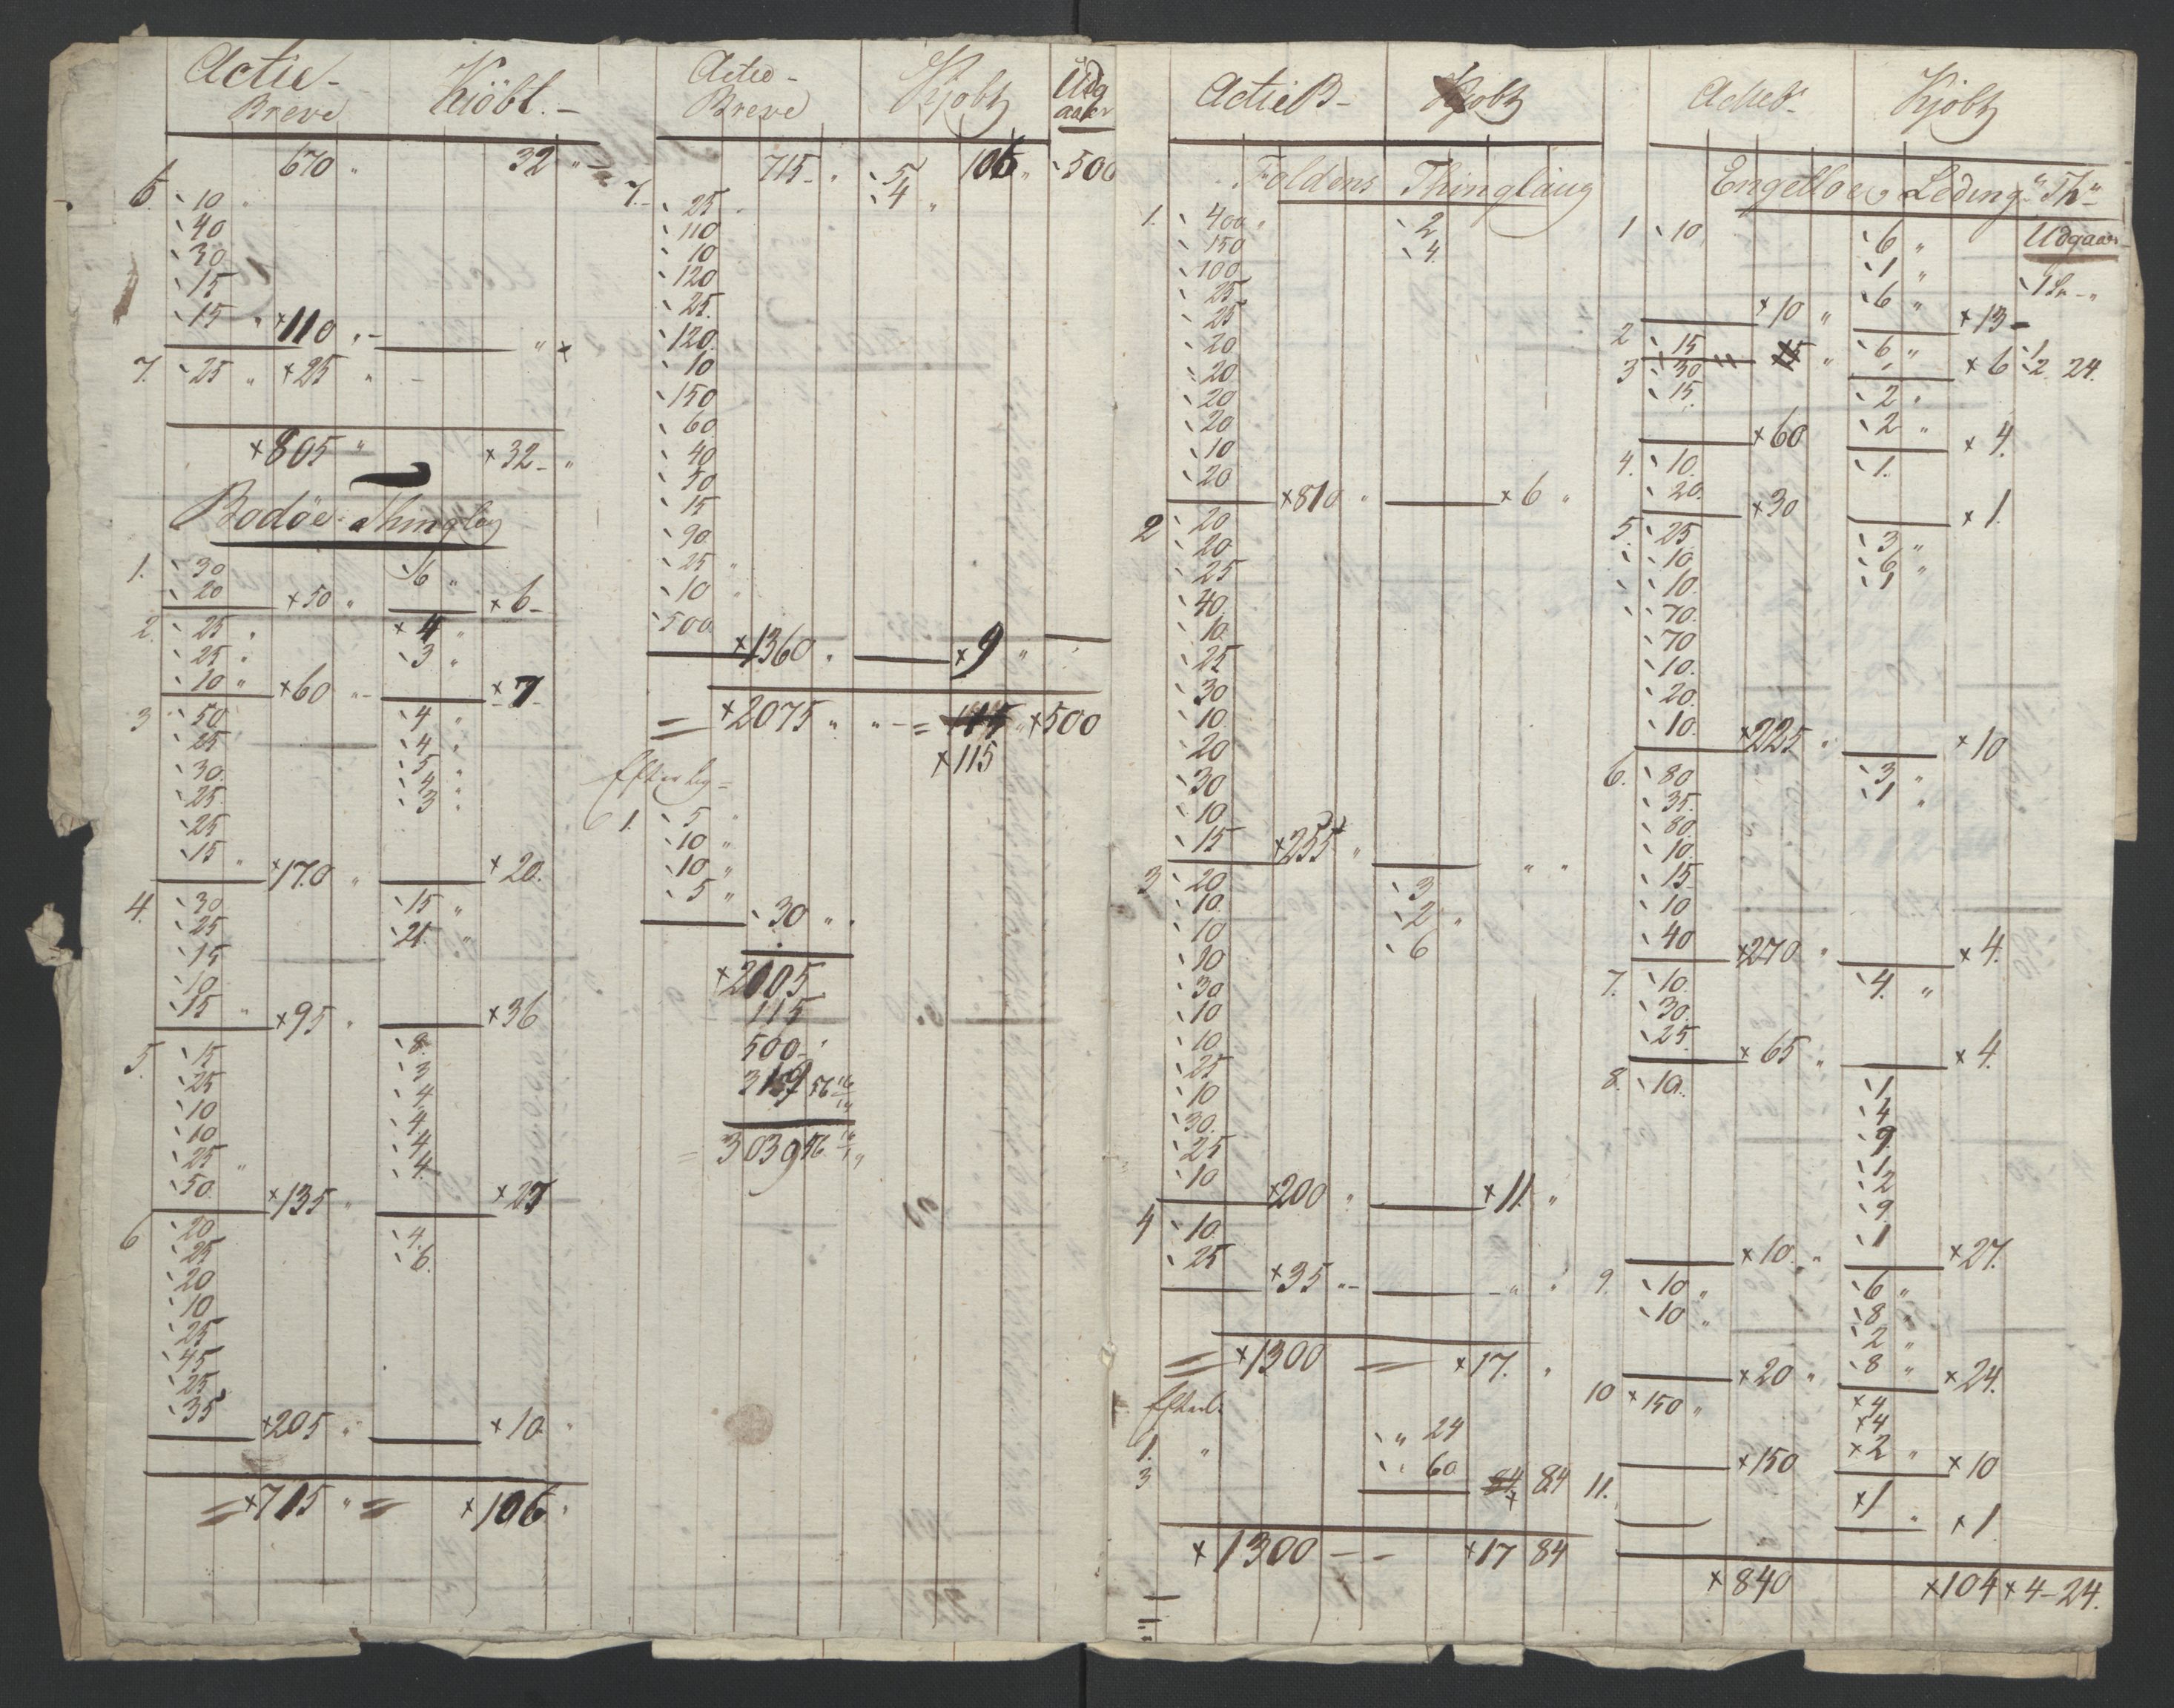 Actie- Kjöbt. -
Breve
670 " 32 "
6. 10 "
40
30
15
15 " ×110 " - " ×
7. 25 " ×25 " -
×805 " ×32 - "
Bodöe Thinglaug
1. 30 6 "
20 ×50 " ×6 -
2. 25 " ×4 "
25 " 3 "
10 " ×60 " - ×7 -
3 50 4 "
25 4 "
30. 5 "
25. 4 "
25 3 "
15 " ×170 " ×20.
4. 30 15 "
25 21 "
15
10
15 " ×95 " ×36
5. 15 8.
25 3
10 4
10 4.
25 " 4
50 4.
×135 " ×27
6 20 4.
25 6.
20
10
25
45
25
35 ×205 " ×10. "
= ×715 " = ×106 "
Actie - Kjobt Udg
Breve aaer
715 - " 5 106 " 500
7. - 25 " 4 "
110
10
120
25.
120.
10
150
60
40
50
15
90
25 "
10 "
500
×1360 " ×9 "
= ×2075 " " - = " ×500
×115
Efterleg -
6 1. 5 "
10 "
10 "
5 "
30 " "
×2105
115
500 - "
319 56
= 3039 56
ActieB - Kjobt
Foldens Thinglaug
1. 400 " 2
150 4
100
25
25
20
20
20
20
10
20
×810 " ×6 "
2 20
20
25
40
10
25
30
10
20
30
10
15 ×255 " " "
3 20 3
10. 2 "
10 6
10
30
10
10
25
10
30.
25
10
×200 " ×11. "
4 10
25
×35 " - - " "
= ×1300 = ×17. "
Efterl.
1. " " 24
3 " 60 84 84
×1300 - - ×17 84
Actieb - Kjobt
Engelloe Leding " Th "
1 10 6 " Udgaar
1 " 1 - "
6 "
×10 " ×13 -
2 15 " 6 " 1
3 30 " ×6 2 24.
15. 2 "
×60 2 " ×4.
4. 10. 1.
20. ×30 ×1.
5. 25 3 "
10 6 "
10. 1
70.
70
10.
20.
10. ×225 " ×10
6. 80 3 "
35. 1 "
80.
10.
15
10
40 ×270 " ×4.
7. 10. 4. "
30.
25. ×65 " ×4.
8. 10. 1
4
9
1
2
9
×10. " 1 ×27.
9. 10 " 6 "
10 " 8 "
2 "
×20 " 8 " ×24.
10 ×150 " ×4
×4
×150 ×2 " ×10
11. ×1 " ×1
×840 ×104 ×4 - 24.